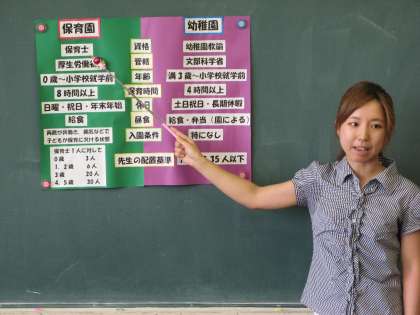 保育園 幼稚園
保育士 資格 幼稚園教諭
厚生労働省 管轄 文部科学省
0歳〜小学校就学前 年齢 満3歳〜小学校就学前
8時間以上 保育時間 4時間以上
日曜・祝日・年末年始 休日 土日祝日・長期休暇
給食 昼食 給食・弁当(園による)
両親が共働き、病気などで
子どもが保育に欠ける状態
入園条件 特になし
保育士1人に対して
0歳 3人
1.2歳 6人
3歳 20人
4.5歳 30人
先生の配置基準 35人以下